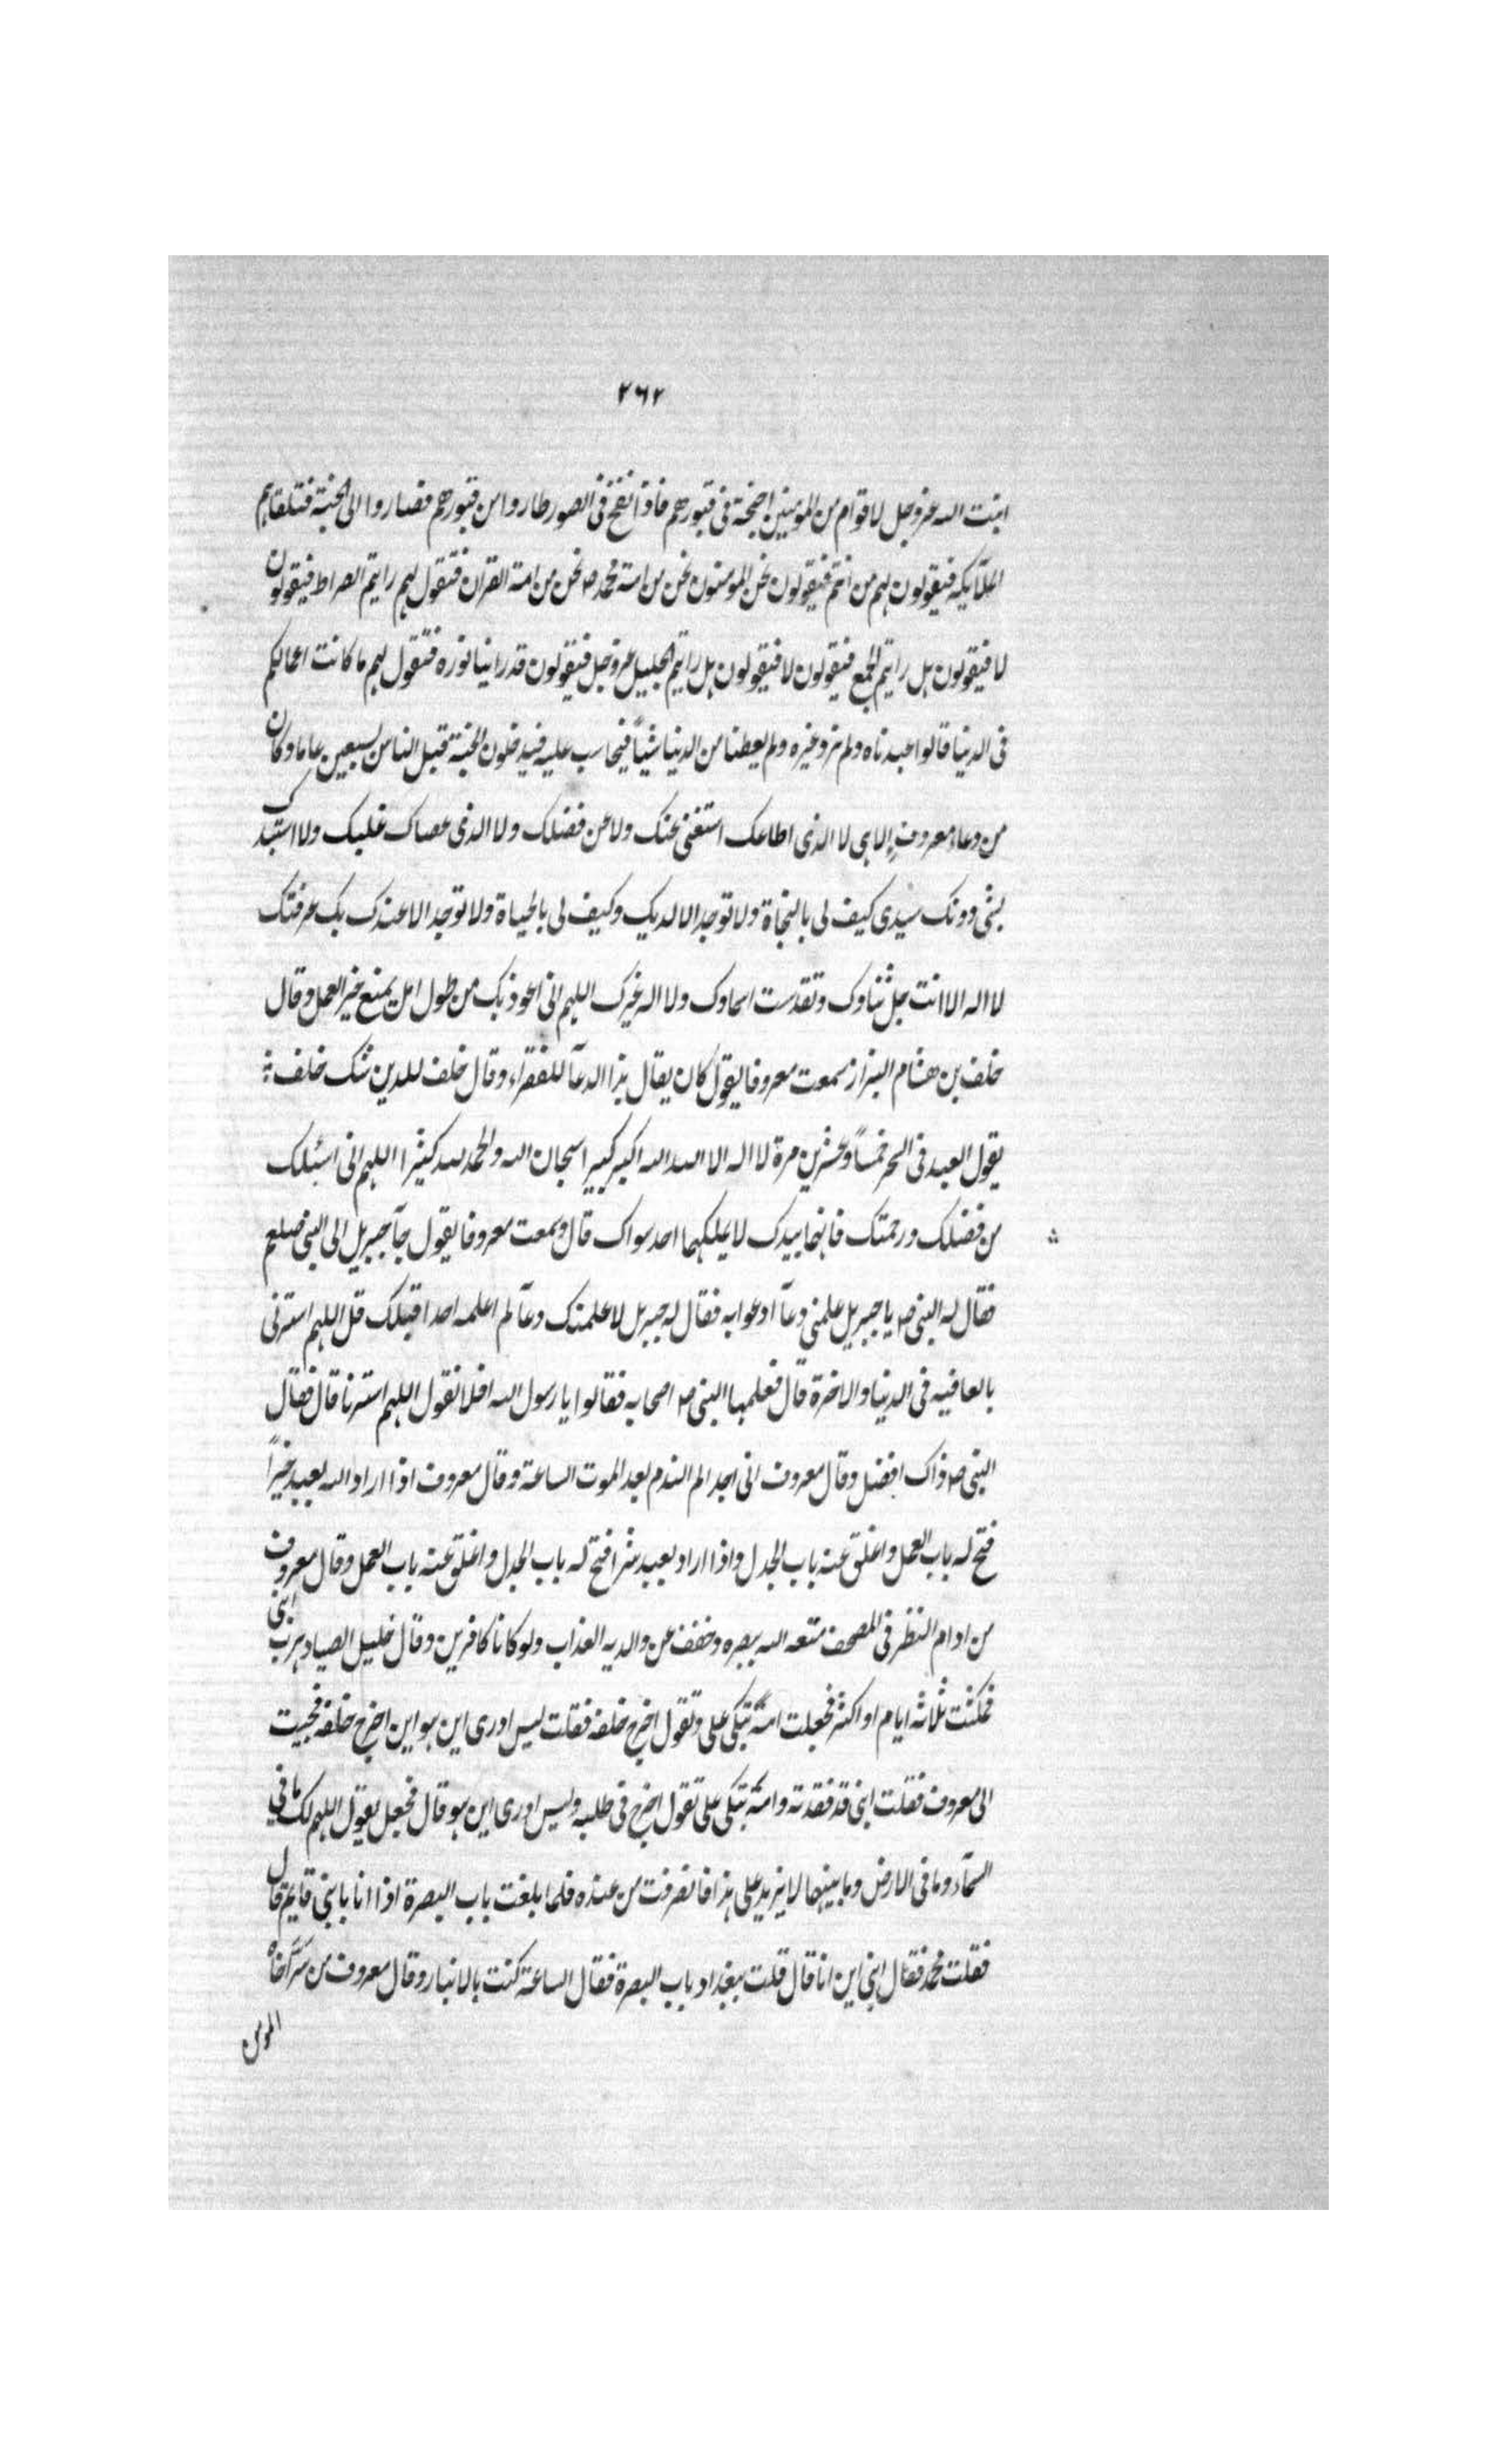 ٢٦٢
انبت الله عزوجل لاقوام من المومنين اجنحة فى قبورهم فاذا نفخ فى الصور طاروا من قبورهم فصاروا الى الجنة فتلقاهم
الملآيكه فيقولون لهم من انتم فيقولون نحن المومنون نحن من امة محمد ص نحن من امة القران فتقول لهم رايتم الصراط فيقولون
لا فيقولون هل رايتم الجمع فيقولون لا فيقولون هل رايتم الجليل عزوجل فيقولون قد راينا نوره فتقول لهم ما كانت اعمالكم
فى الدنيا قالوا عبدناه ولم نر وغيره ولم يعطنا من الدنيا شيئاً فيحاسب عليه فيدخلون الجنة قبل الناس بسبعين عاما وكان
من دعاء معروف إلاهى لا الذى اطاعك استغنى عنك ولا عن فضلك ولا الذى عصاك غلبك ولا استبدك
بشى دونك سيدى كيف لى بالنجاة ولا توجد الا لديك وكيف لى بالحياة ولا توجد الا عندك بك عرفتك
لا اله الا انت جل ثناوك وتقدست اسماوك ولا اله غيرك اللهم انى اعوذ بك من طول امل يمنع خير العمل وقال
خلف بن هشام البزاز سمعت معروفا يقول كان يقال هذا الدعآ للفقراء وقال خلف للدين شك خلف :
يقول العبد فى السحر خمساً وعشرين مرة لا اله الا الله الله اكبر كبيرا سبحان الله والحمد لله كثيرا اللهم انى اسئلك
من فضلك ورحمتك فانهما بيدك لا يملكهما احد سواك قال وسمعت معروفا يقول جآ جبريل الى النبى صلعم
فقال له النبى ص يا جبريل علمنى دعآ ادعوا به فقال له جبريل لاعلمنك دعآ لم اعلمه احدا قبلك قل اللهم استرنى
بالعافيه فى الدنيا والاخرة قال فعلمها النبى ص اصحابه فقالوا يا رسول الله افلا نقول اللهم استرنا قال فقال
النبى ص ذاك افضل وقال معروف انى اجد الم الندم بعد الموت الساعة وقال معروف اذا اراد الله بعبد خيراً
فتح له باب العمل واغلق عنه باب الجدل واذا اراد بعبد شرا فتح له باب الجدل واغلق عنه باب العمل وقال معروف
من ادام النظر فى المصحف متعه الله ببصره وخفف عن والديه العذاب ولو كانا كافرين وقال خليل الصياد هرب ابنى
فمكثت ثلاثه ايام او اكثر فجعلت امه تبكى على وتقول اخرج خلفه فقلت ليس ادرى اين هو اين اخرج خلفه فجيت
الى معروف فقلت ابنى قد فقدته وامه تبكى على تقول اخرج فى طلبه وليس ادرى اين هو قال فجعل يقول اللهم لك ما فى
السمآء وما فى الارض وما بينهما لا يزيد على هذا فانصرفت من عنده فلما بلغت باب البصرة اذا انا بابنى قايم قال
فقلت محمد فقال ابنى اين انا قال قلت ببغداد باب البصرة فقال الساعة كنت بالانبار وقال معروف من سَرَّ اخاه
المومن